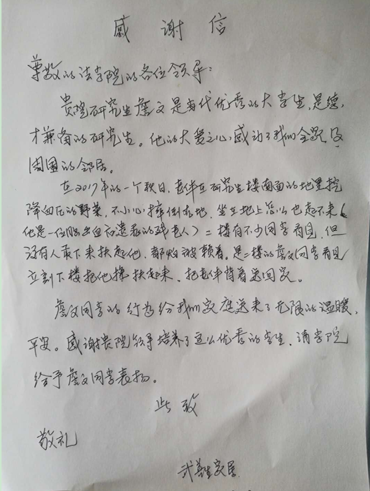 感谢信
尊敬的法学院的各位领导：
贵院研究生詹文是当代优秀的大学生，是德
才兼备的研究生，他的大爱之心感动了我们全家及
周围的邻居。
在2017年的一个秋日，老伴在研究生楼南面的地里挖
降血压的野菜，不小心摔倒在地，坐在地上怎么也起不来（
他是一位脑血后遗症的残老人）二楼有不少同学看见，但
没有人敢下来扶起他，都怕被赖着，是二楼的詹文同学看见
立刻下楼把他搀扶起来，把老伴背着送回家。
詹文同学的行为给我们家庭送来了无限的温暖，
平安。感谢贵院领导培养了这么优秀的学生，请学院
给予詹文同学表扬。
此致
敬礼
家属